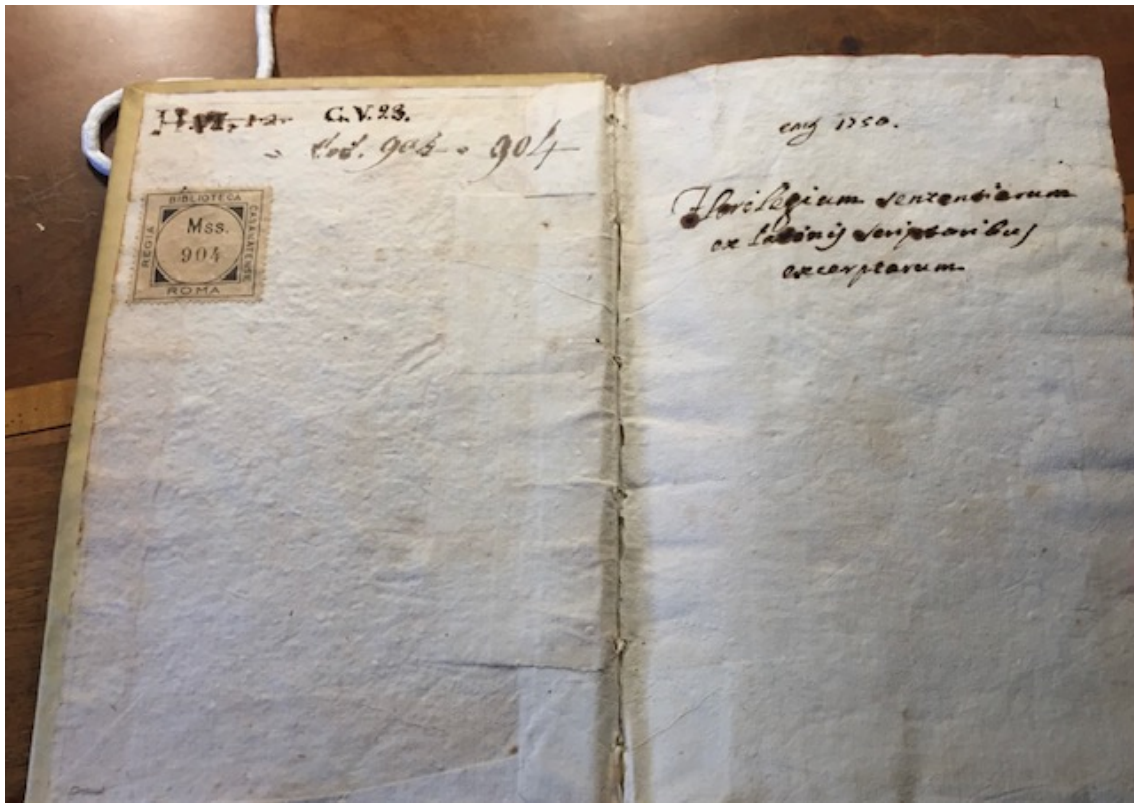 C. V. 23.
Cod. 904 904
BIBLIOTECA
CASANATENSE
REGIA
Mss.
904
ROMA
1
1750.
Florilegium sententiarum
ex latinis scriptoribus
excerptarum